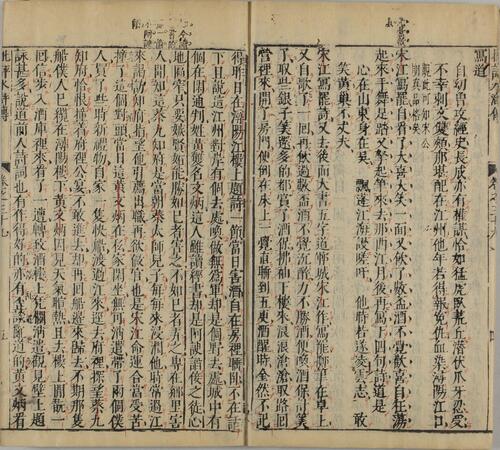 寫道
自幼曾攻經史長成亦有權謀恰如猛虎臥荒丘潛伏爪牙忍受
不幸刺文雙頰那堪配在江州他年若得報冤仇血染潯陽江口
觀此可知宋公
明真品格矣
宋江寫罷自看了大喜大笑一面又飲了數盃酒不覺歡喜自狂蕩
起來手舞足蹈又拏起筆來去那西江月後再寫上四句詩道是
心在山東身在吳 飄蓬江海謾嗟吁 他時若遂凌雲志 敢
笑黃巢不丈夫
宋江寫罷詩又去後面大書五字道鄆城宋江作寫罷擲筆在卓上
又自歌了一回再飲過數盃酒不覺沉醉力不勝酒便喚酒保計算
了取些銀子筭還多的都賞了酒保拂袖下樓來踉踉蹌蹌取路回
營裡來開了房門便倒在床上一覺直睡到五更酒醒時全然不記
得昨日在潯陽江樓上題詩一節當日害酒自在房裡睡臥不在話
下且說這江州對岸有個去處喚做無爲軍却是個野去處城中有
個在閑通判姓黃雙名文炳這人雖讀經書却是個阿諛諂佞之徒心
地匾窄只要嫉賢妬能勝如己者害之不如己者弄之專在鄉里害
人聞知這蔡九知府是當朝蔡太師兒子每每來浸潤他時常過江
來謁訪知府指望他引薦出職再欲做官也是宋江命運合當受苦
撞了這個對頭當日這黃文炳在私家閑坐無可消遣帶了兩個僕
人買了些時新禮物自家一隻快船渡過江來逕去府裡探望蔡九
知府恰恨撞着府裡公宴不敢進去却再回船邊來歸去不期那隻
船僕人已纜在潯陽樓下黃文炳因見天氣暄熱且去樓上閒翫一
回信步入酒庫裡來看了一遭轉到酒樓上凭欄消遣觀見壁上題
詠甚多說道前人詩詞也有作得好的亦有歪談亂道的黃文炳看
批評水滸傳 卷之三十九 五